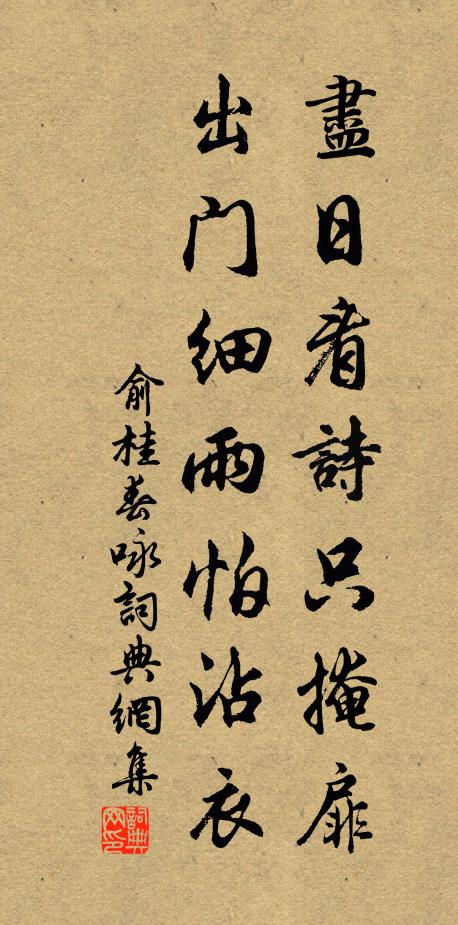 盡日看詩只掩扉
出门細雨怕沾衣
俞桂春咏詞典網集
詞典网印